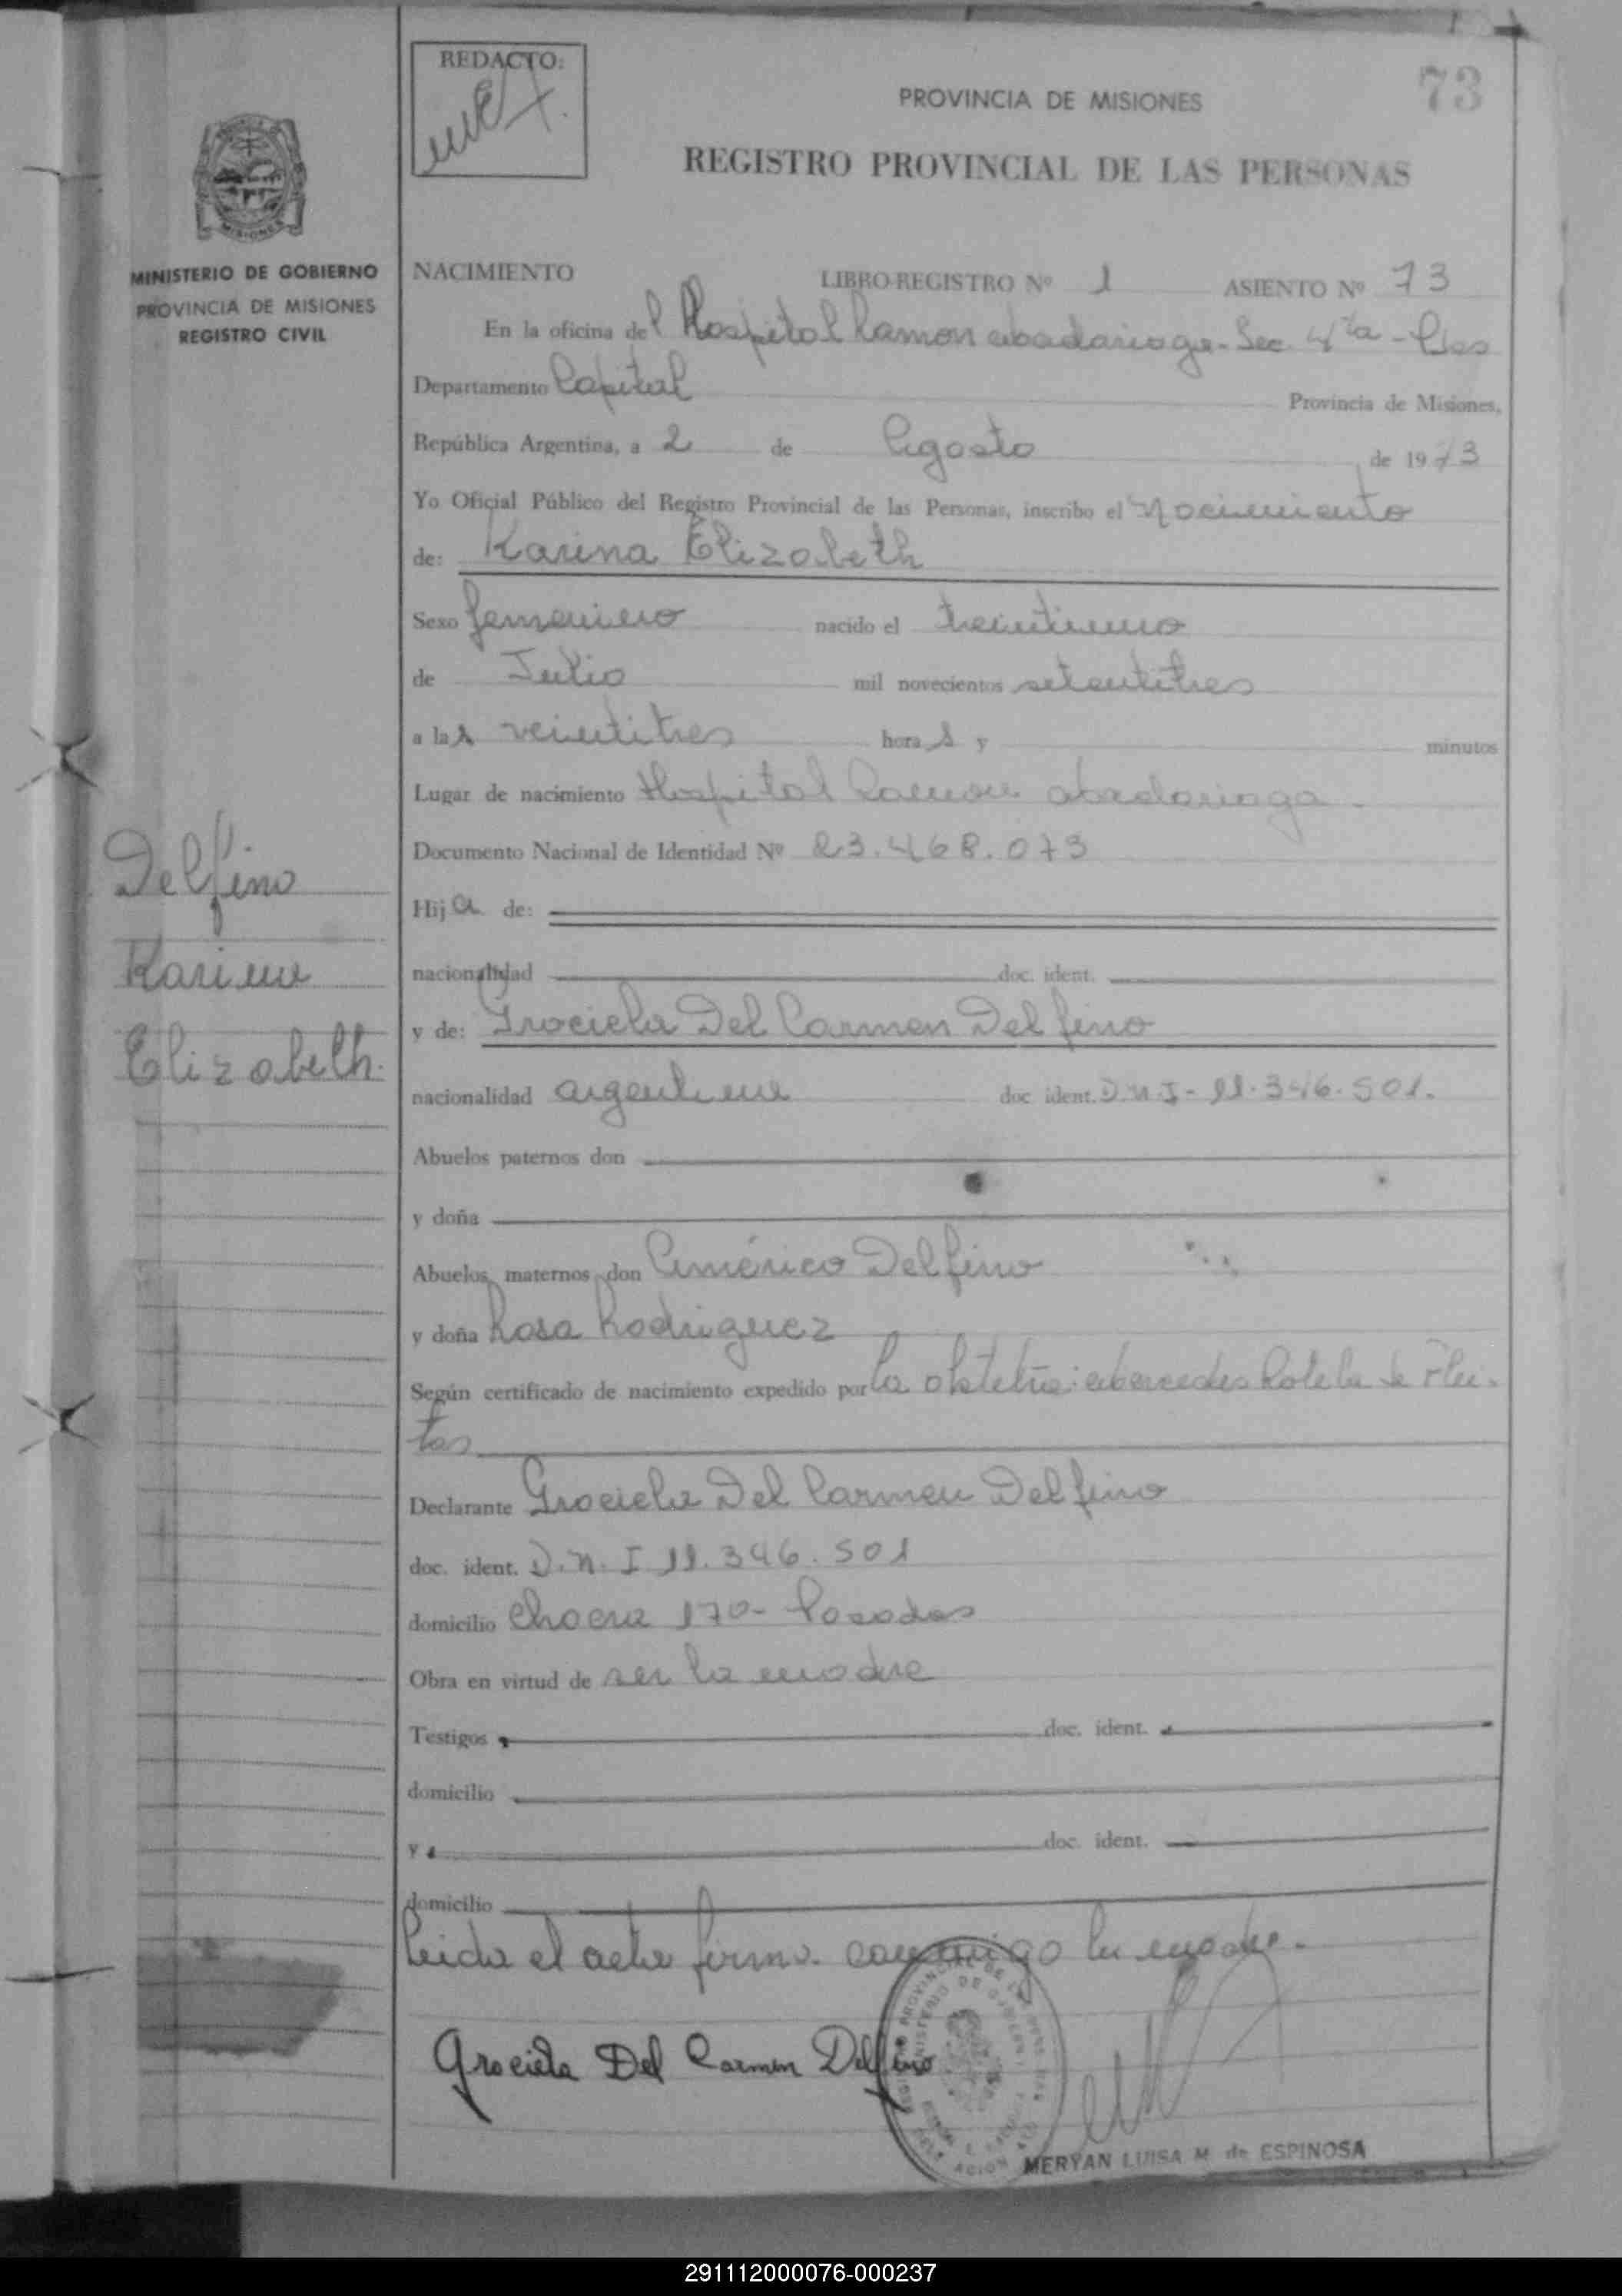 REDACTO:
73
PROVINCIA DE MISIONES
REGISTRO PROVINCIAL DE LAS PERSONAS
MISIONES
MINISTERIO DE GOBIERNO
PROVINCIA DE MISIONES
REGISTRO CIVIL
NACIMIENTO LIBRO-REGISTRO Nº 1 ASIENTO Nº 73
En la oficina del Hospital Ramon Madariaga - Sec. 4ta - Pdas
Departamento Capital Provincia de Misiones,
República Argentina, a 2 de Agosto de 1973
Yo Oficial Público del Registro Provincial de las Personas, inscribo el Nacimiento
de: Karina Elizabeth
Sexo femenino nacido el treintiuno
de Julio mil novecientos setentitres
a las veintitres horas y minutos
Lugar de nacimiento Hospital Ramon Madariaga.
Documento Nacional de Identidad Nº 23.468.073
Delfino
Karina
Elizabeth.
Hija de:
nacionalidad doc. ident.
y de: Graciela Del Carmen Delfino
nacionalidad argentina doc ident. D.N.I - 11.346.501.
Abuelos paternos don
y doña
Abuelos maternos don Américo Delfino
y doña Rosa Rodriguez
Según certificado de nacimiento expedido por la obstetra: Mercedes de Flei-
tas
Declarante Graciela Del Carmen Delfino
doc. ident. D.N.I 11.346.501
domicilio Chacra 170 - Posadas
Obra en virtud de ser la madre
Testigos doc. ident.
domicilio
y doc. ident.
domicilio
Leida el acta firma conmigo la madre.-
Graciela Del Carmen Delfino
MERYAN LUISA M de ESPINOSA
291112000076-000237